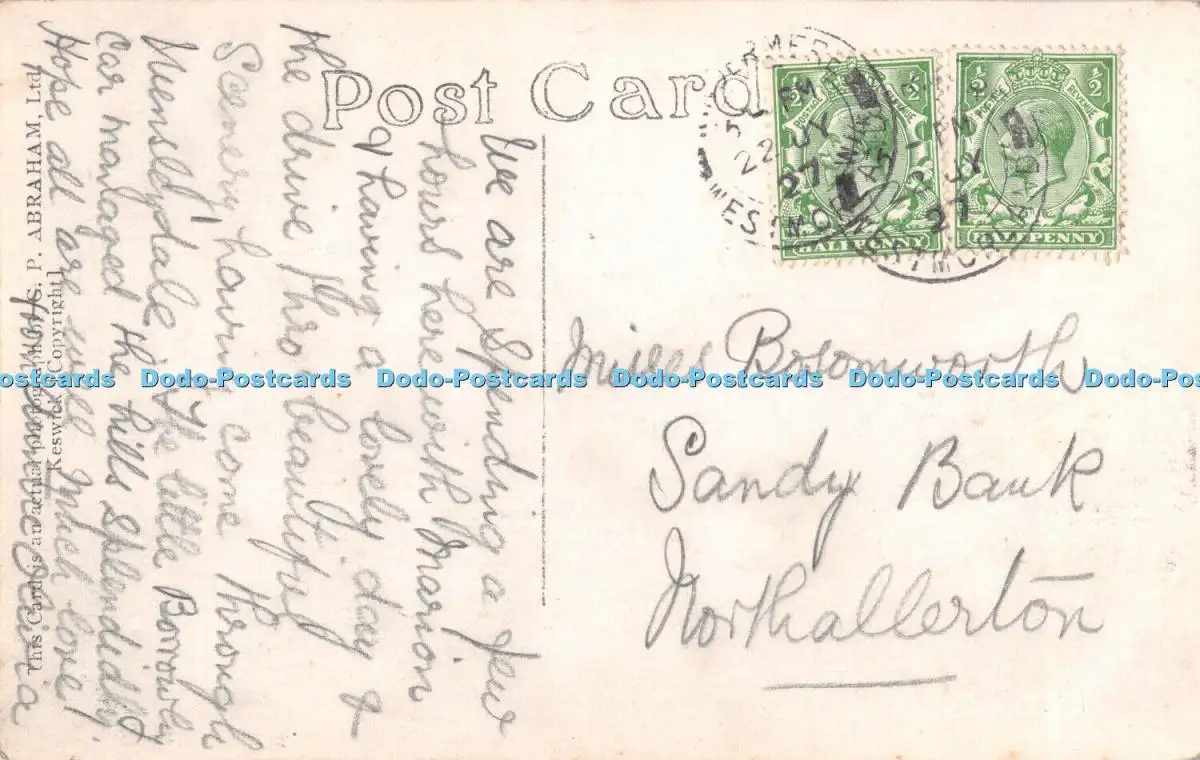 Post Card
We are Spending a few
hours here with Marion
& having a lovely day &
the drive thro beautiful
Scenery, having come through
Wensleydale. The little Borrowly
car managed the hills splendidly.
Hope all are well. Much love
This Card is an actual photograph G. P. ABRAHAM, Ltd
Keswick [Copyright]
Misses Broomworth
Sandy Bank
Northallerton
22 JY
27
WESTMORLAND
HALFPENNY
POSTAGE REVENUE
½ ½
JY
27
WESTMORLAND
HALFPENNY
POSTAGE REVENUE
½ ½
Dodo-Postcards Dodo-Postcards Dodo-Postcards Dodo-Postcards Dodo-Postcards Dodo-Postcards